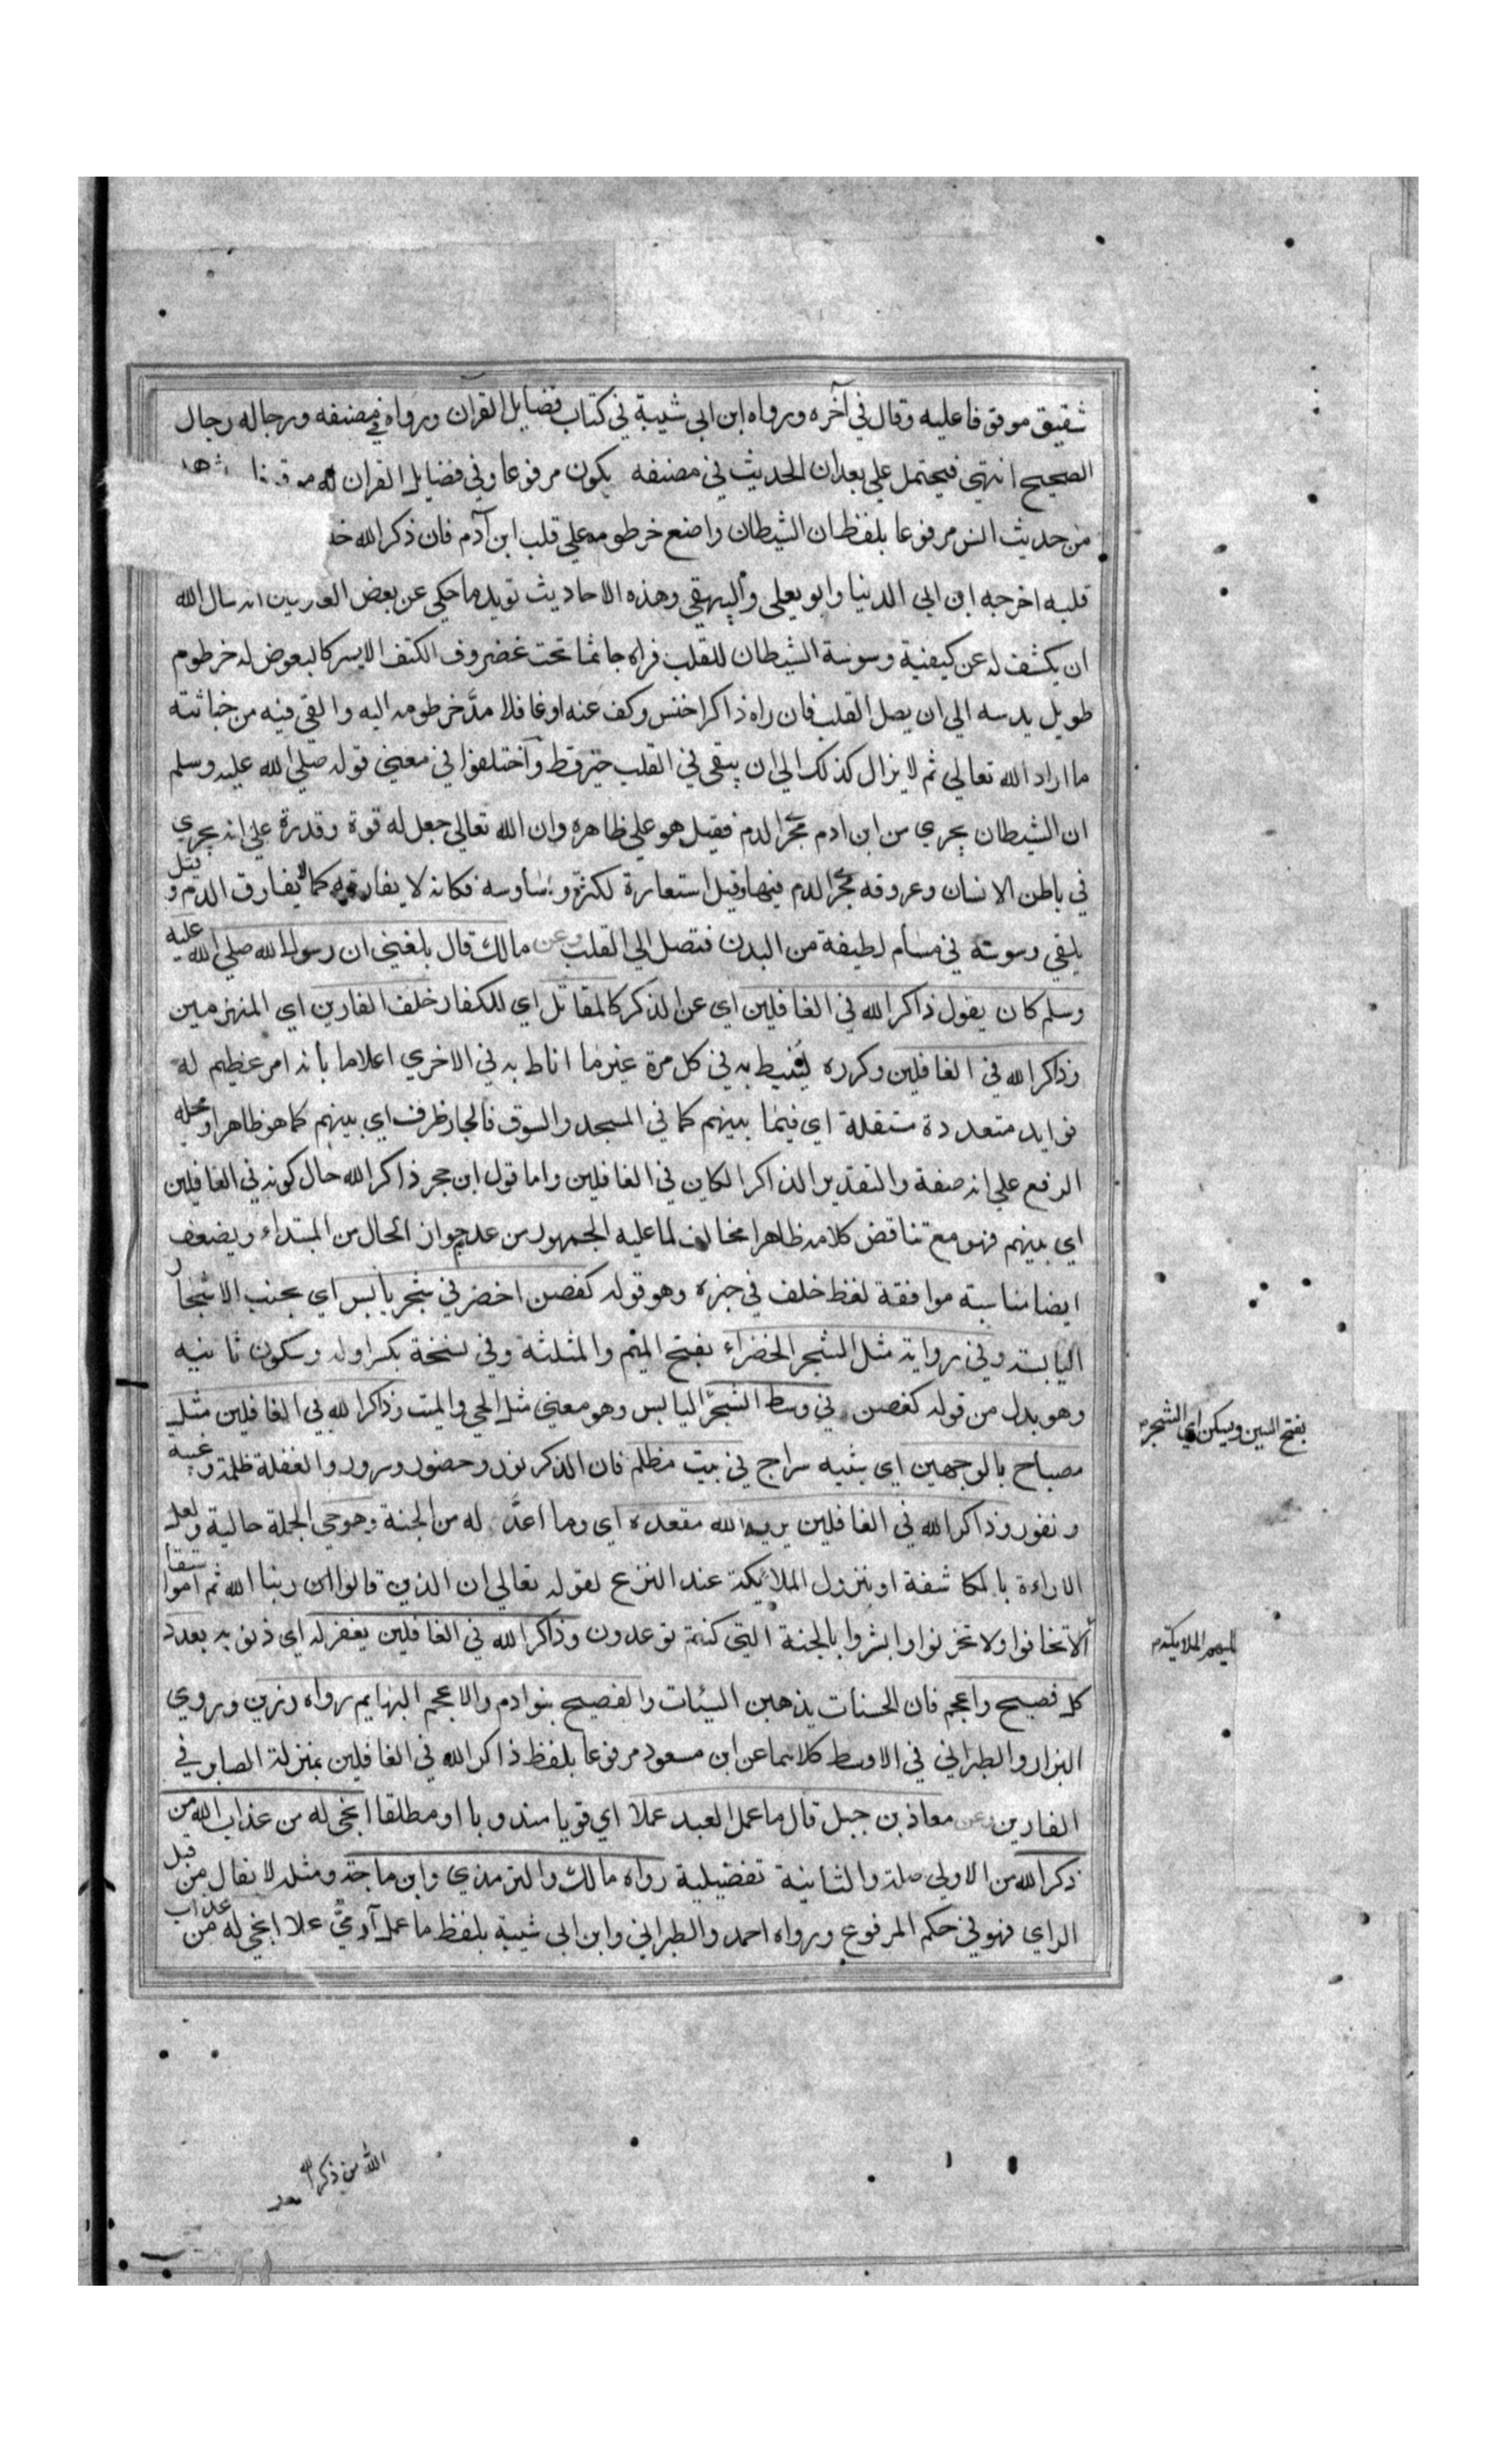 شقيق موقوفا عليه وقال في آخره ورواه ابن ابي شيبة في كتاب فضايل القرآن ورواه في مصنفه ورجاله رجال
الصحيح انتهي فيحتمل علي بعد ان الحديث في مصنفه يكون مرفوعا وفي فضايل القران له موقوفا
من حديث انس مرفوعا بلفظ ان الشيطان واضع خرطومه علي قلب ابن آدم فان ذكر الله
قلبه اخرجه ابن ابي الدنيا وابو يعلي والبيهقي وهذه الاحاديث تويد ما حكي عن بعض العارفين انه سال الله
ان يكشف له عن كيفية وسوسة الشيطان للقلب فراه جاثما تحت غضروف الكتف الايسر كالبعوض له خرطوم
طويل يدسه الي ان يصل القلب فان راه ذاكرا خنس وكف عنه او غافلا مدَّ خرطومه اليه والقي فيه من خباثته
ما اراد الله تعالي ثم لا يزال كذلك الي ان يبقي في القلب خير قط وآختلفوا في معني قوله صلي الله عليه وسلم
ان الشيطان يجري من ابن ادم مجري الدم فقيل هو علي ظاهره وان الله تعالي جعل له قوة وقدرة علي انه يجري
في باطن الانسان وعروقه مجري الدم فيها وقيل استعارة لكثرة وساوسه فكانه لا يفارقه كما لا يفارق الدم وقيل
يلقي وسوسته في مسام لطيفة من البدن فتصل الي القلب وعن مالك قال بلغني ان رسول الله صلي الله عليه
وسلم كان يقول ذاكر الله في الغافلين اي عن الذكر كالمقاتل اي للكفار خلف الفارين اي المنهزمين
وذاكر الله في الغافلين وكرره لينيط به في كل مرة غير ما اناط به في الاخري اعلاما بأنه امر عظيم له
فوايد متعددة مستقلة اي فيما بينهم كما في المسجد والسوق فالجار ظرف اي بينهم كما هو ظاهر او محله
الرفع علي انه صفة والتقدير الذاكر الكاين في الغافلين واما قول ابن حجر ذاكر الله حال كونه في الغافلين
اي بينهم فهو مع تناقض كلامه ظاهرا مخالف لما عليه الجمهور من عدم جواز الحال من المبتداء ويضعف
ايضا مناسبة موافقة لفظ خلف في جزه وهو قوله كغصن اخضر في شجر يابس اي بجنب الاشجار
اليابسة وفي رواية مثل الشجر الخضراء بفتح الميم والمثلثة وفي نسخة بكسر اوله وسكون ثانيه
وهو بدل من قوله كغصن في وسط الشجر اليابس وهو معني مثل الحي والميت وذاكر الله في الغافلين مثل
مصباح بالوجهين اي شبيه سراج في بيت مظلم فان الذكر نور وحضور وسرور والغفلة ظلمة وغيبة
ونفور وذاكر الله في الغافلين يريه الله مقعده اي وما اعدَّ له من الجنة وهو حي الجملة حالية ولعل
الاراءة بالمكاشفة او بنزول الملائكة عند النزع لقوله تعالي ان الذين قالوا ربنا الله ثم استقاموا
ألا تخافوا ولا تحزنوا وابشروا بالجنة التي كنتم توعدون وذاكر الله في الغافلين يغفر له اي ذنوبه بعدد
كل فصيح واعجم فان الحسنات يذهبن السيئات والفصيح بنوا دم والاعجم البهايم رواه رزين وروي
البزار والطبراني في الاوسط كلاهما عن ابن مسعود مرفوعا بلفظ ذاكر الله في الغافلين بمنزلة الصابر في
الفارين وعن معاذ بن جبل قال ما عمل العبد عملا اي قويا مندوبا او مطلقا انجي له من عذاب الله من
ذكر الله من الاولي صلة والثانية تفضيلية رواه مالك والترمذي وابن ماجة ومثله لا يقال من قبل
الراي فهو في حكم المرفوع ورواه احمد والطبراني وابن ابي شيبة بلفظ ما عمل آدميٌّ عملا انجي له من عذاب
بفتح السين ويسكن اي الشجرة
الله من ذكر الله